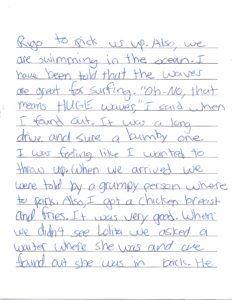 to pick us up. Also, we
are swimming in the ocean. I
have been told that the waves
are great for surfing. "Oh-No, that
means HUGE waves," I said when
I found out. It was a long
drive and sure a bumby one.
I was feeling like I wanted to
throw up. When we arrived we
were told by a grumpy person where
to park. Also, I got a chicken breast
and fries. It was very good. When
we didn't see Lolita we asked a
waiter where she was and we
found out she was in back. He